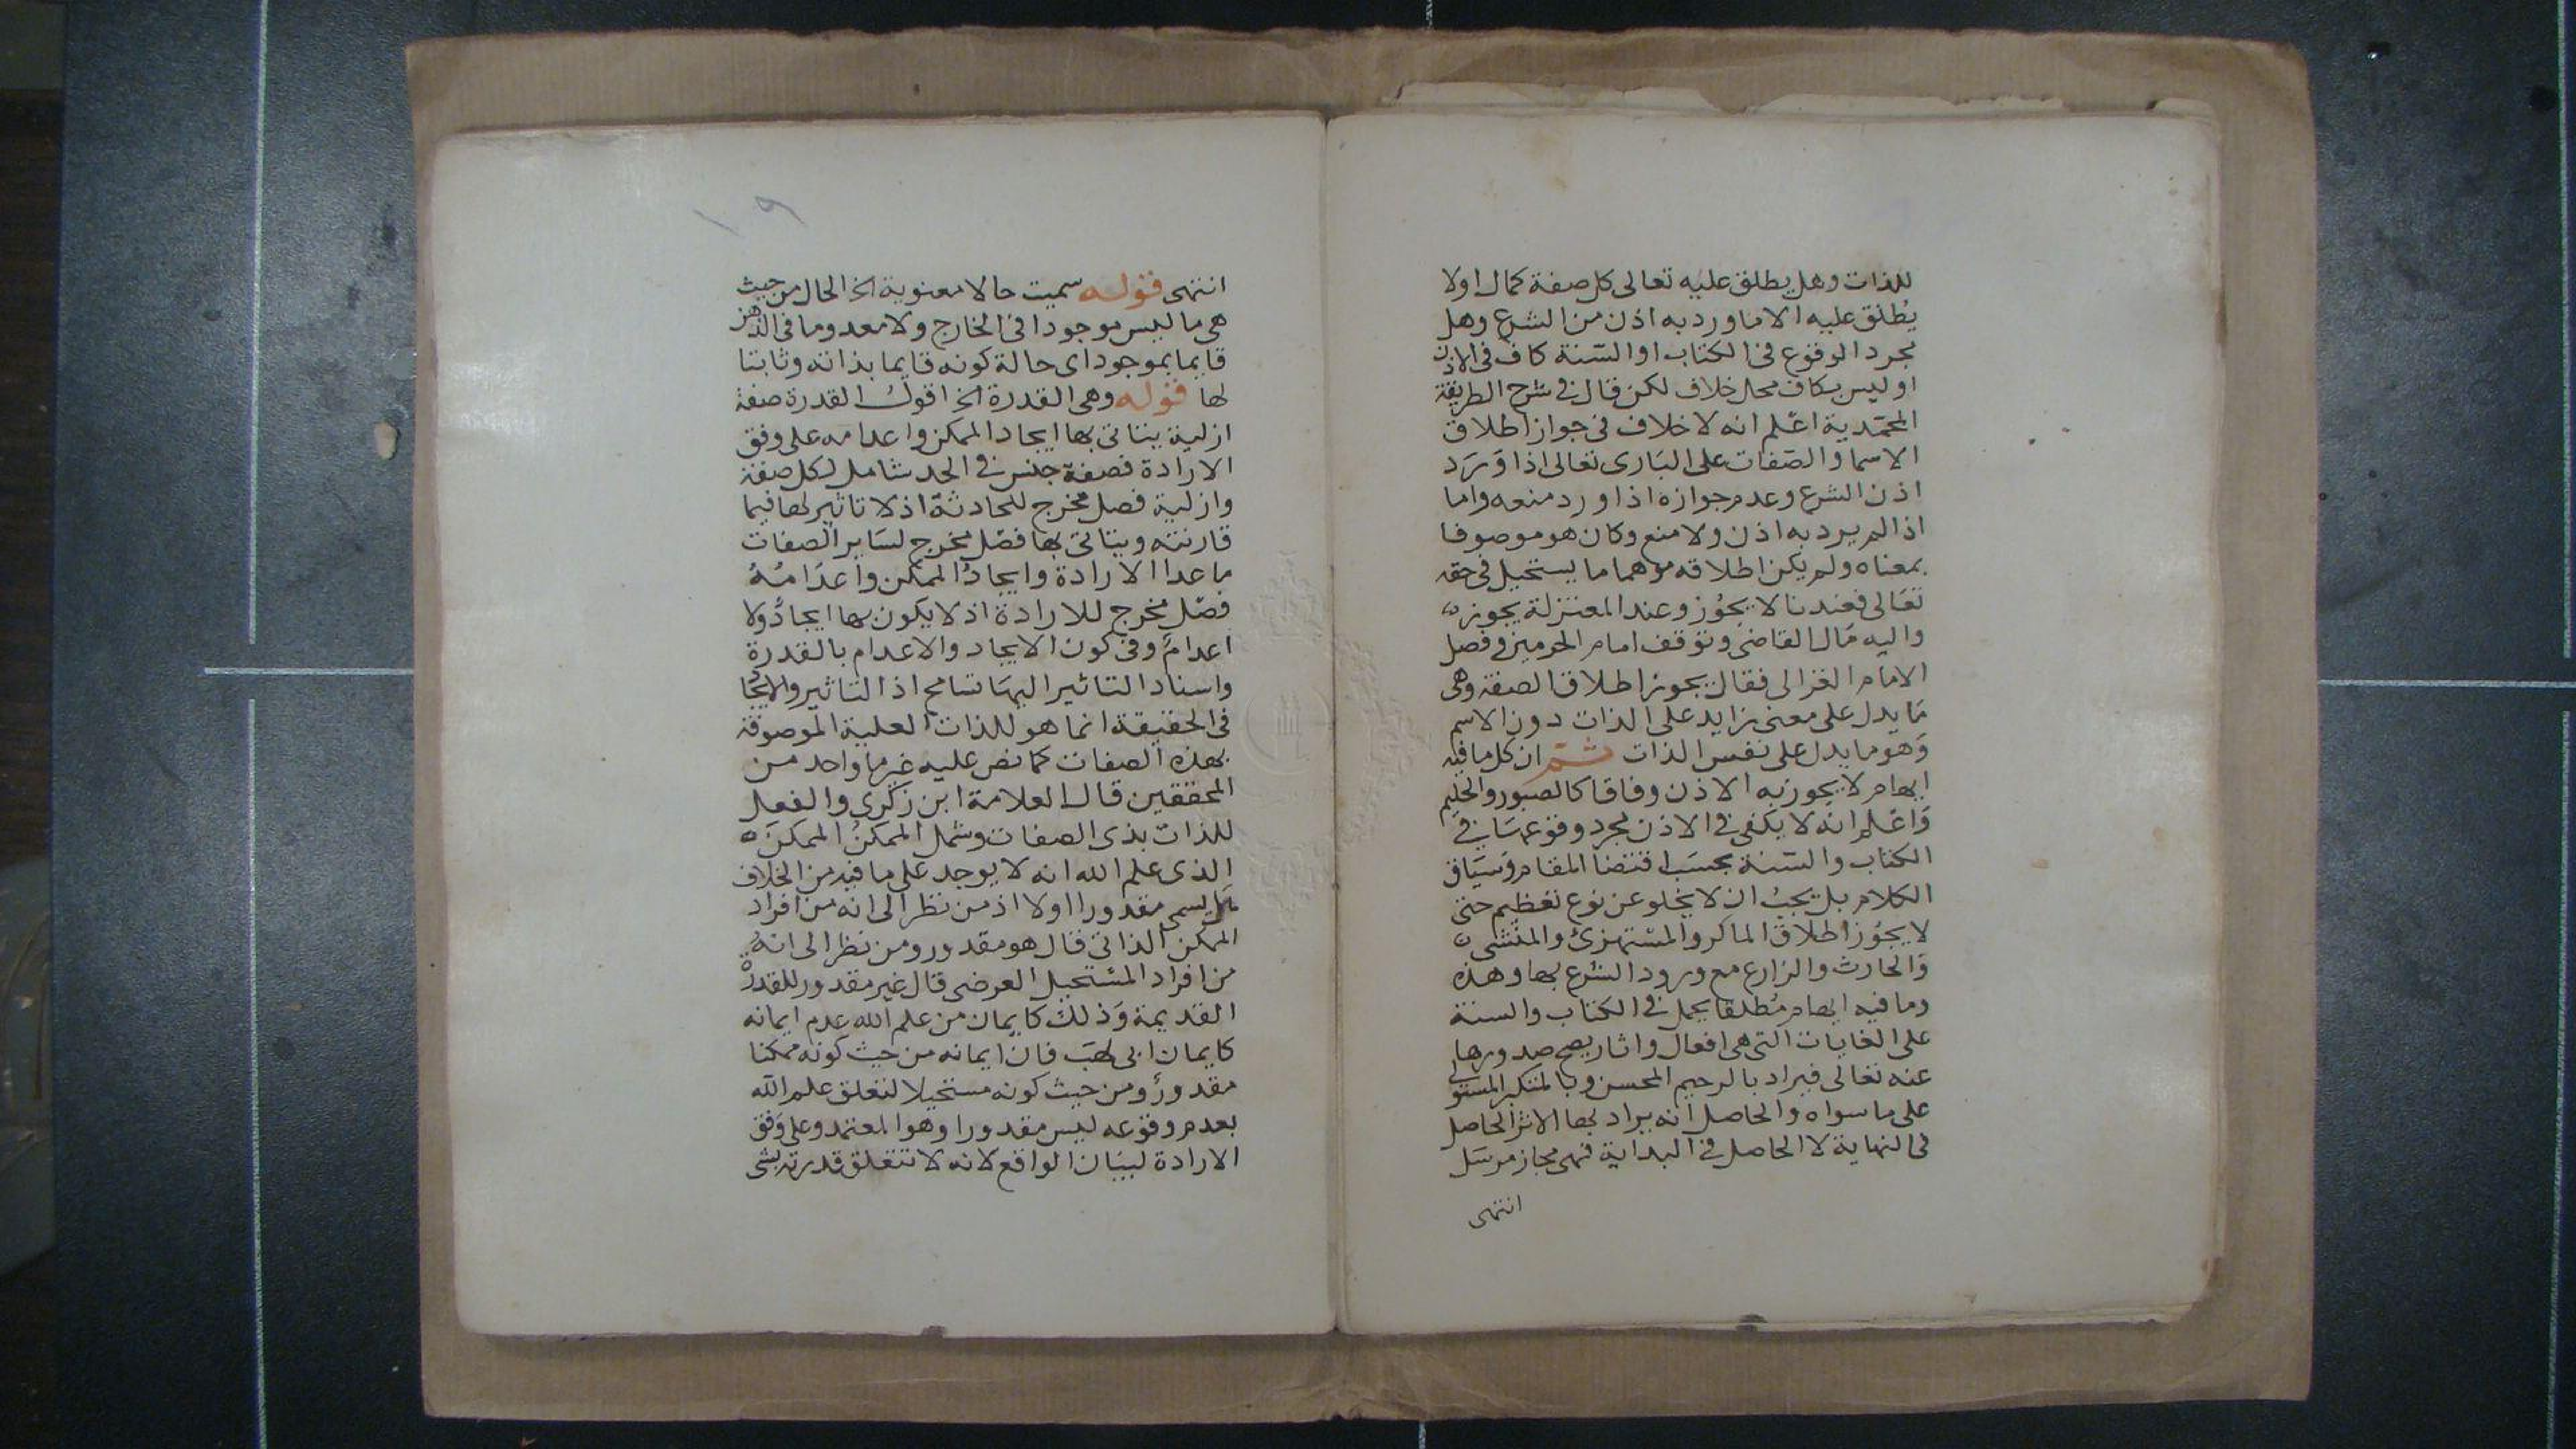 للذات وهل يطلق عليه تعالى كل صفة كمال اولا
يُطلق عليه الا ما ورد به اذن من الشرع وهل
مجرد الوقوع فى الكتاب او السّنة كاف فى الاذن
او ليس بكاف محل خلاف لكن قال فى شرح الطريقة
المحمّدية اعلم انه لا خلاف فى جواز اطلاق
الاسما والصّفات على البَارى تعالى اذا وَرَد
اذن الشرع وعدم جوازه اذا ورد منعه واما
اذا لم يرد به اذن ولا منع وكان هو موصوفا
بمعناه ولم يكن اطلاقه موهما ما يستحيل فى حقه
تعَالى فعندنا لا يجوُز وعند المعتزلة يجوز
واليه مَال القاضى وتوقف امام الحرمين وفصل
الامام الغزالى فقال يجوز اطلاق الصفة وهى
مَا يدل على معنى زايد على الذات دون الاسم
وَهو ما يدل على نفس الذات ثم ان كل ما فيه
ايهام لا يجوز به الاذن وفاقا كالصبور والحليم
وَاعْلم انه لا يكفى فى الاذن مجرد وقوعهَا فى
الكتاب والسّنة بحسَب اقتضا المقام وَسيَاق
الكلام بل يجبُ ان لا يخلو عن نوع تعظيم حتى
لا يجوُز اطلاق الماكر والمسْتهزئ والمنْشى
وَالحارث والزارع مع ورود الشرع بها وهذه
وما فيه ايهام مُطلقا يحمل فى الكتاب والسنة
على الغايات التى هى افعال واثار يصح صدورها
عنه تعالى فيراد بالرحيم المحسن وبالمتكبر المستولى
على ما سواه والحاصل انه يراد بها الاثر الحاصل
فى النهاية لا الحاصل فى البداية فهى مجاز مرسَل
انتهى
١٩
انتهى قوله سميت حالا معنوية الخ الحال من حيث
هى ما ليس موجودا فى الخارج ولا معدوما فى الذهن
قايما بموجود اى حالة كونه قايما بذاته وثابتا
لها قوله وهى القدرة الخ اقول القدرة صفة
ازلية يتاتى بها ايجاد الممكن واعدامه على وفق
الارادة فصفة جنس فى الحد شامل لكل صفة
وازلية فصل مخرج للحادثة اذ لا تاثير لها فيما
قارنته ويتاتى بها فصْل مخرج لسَاير الصفات
ما عدا الارادة وايجادُ الممكن واعدَامُهُ
فصْل مخرج للارادة اذ لا يكون بها ايجادٌ ولا
اعدامٌ وفى كون الايجاد والاعدام بالقدرة
واسناد التاثير اليهَا تسامح اذ التاثير والايجاد
فى الحقيقة انما هو للذات العلية الموصوفة
بهذه الصفات كما نص عليه غير ما واحد من
المحققين قال العلامة ابن زكرى والفعل
للذات بذى الصفات وشمل الممكنُ الممكنَ
الذى علم الله انه لا يوجد على ما فيه من الخلاف
هل يسمى مقدورا اولا اذ من نظر الى انه من افراد
الممكن الذاتى قال هو مقدور ومن نظر الى انه
من افراد المسْتحيل العرضى قال غير مقدور للقدرة
القديمة وَذلك كايمان من علم الله عدم ايمانه
كايمان ابى لهَب فان ايمانه من حيث كونه ممكنا
مقدورٌ ومن حيث كونه مستحيلا لتعلق علم الله
بعدم وقوعه ليس مقدورا وهو المعتمد وعلى وَفق
الارادة لبيَان الواقع لانه لا تتعلق قدرته بشى